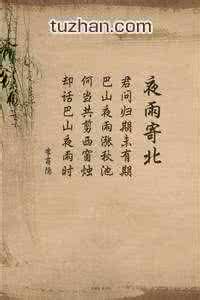 tuzhan.com
夜雨寄北
君问归期未有期
巴山夜雨涨秋池
何当共剪西窗烛
却话巴山夜雨时
李商隐